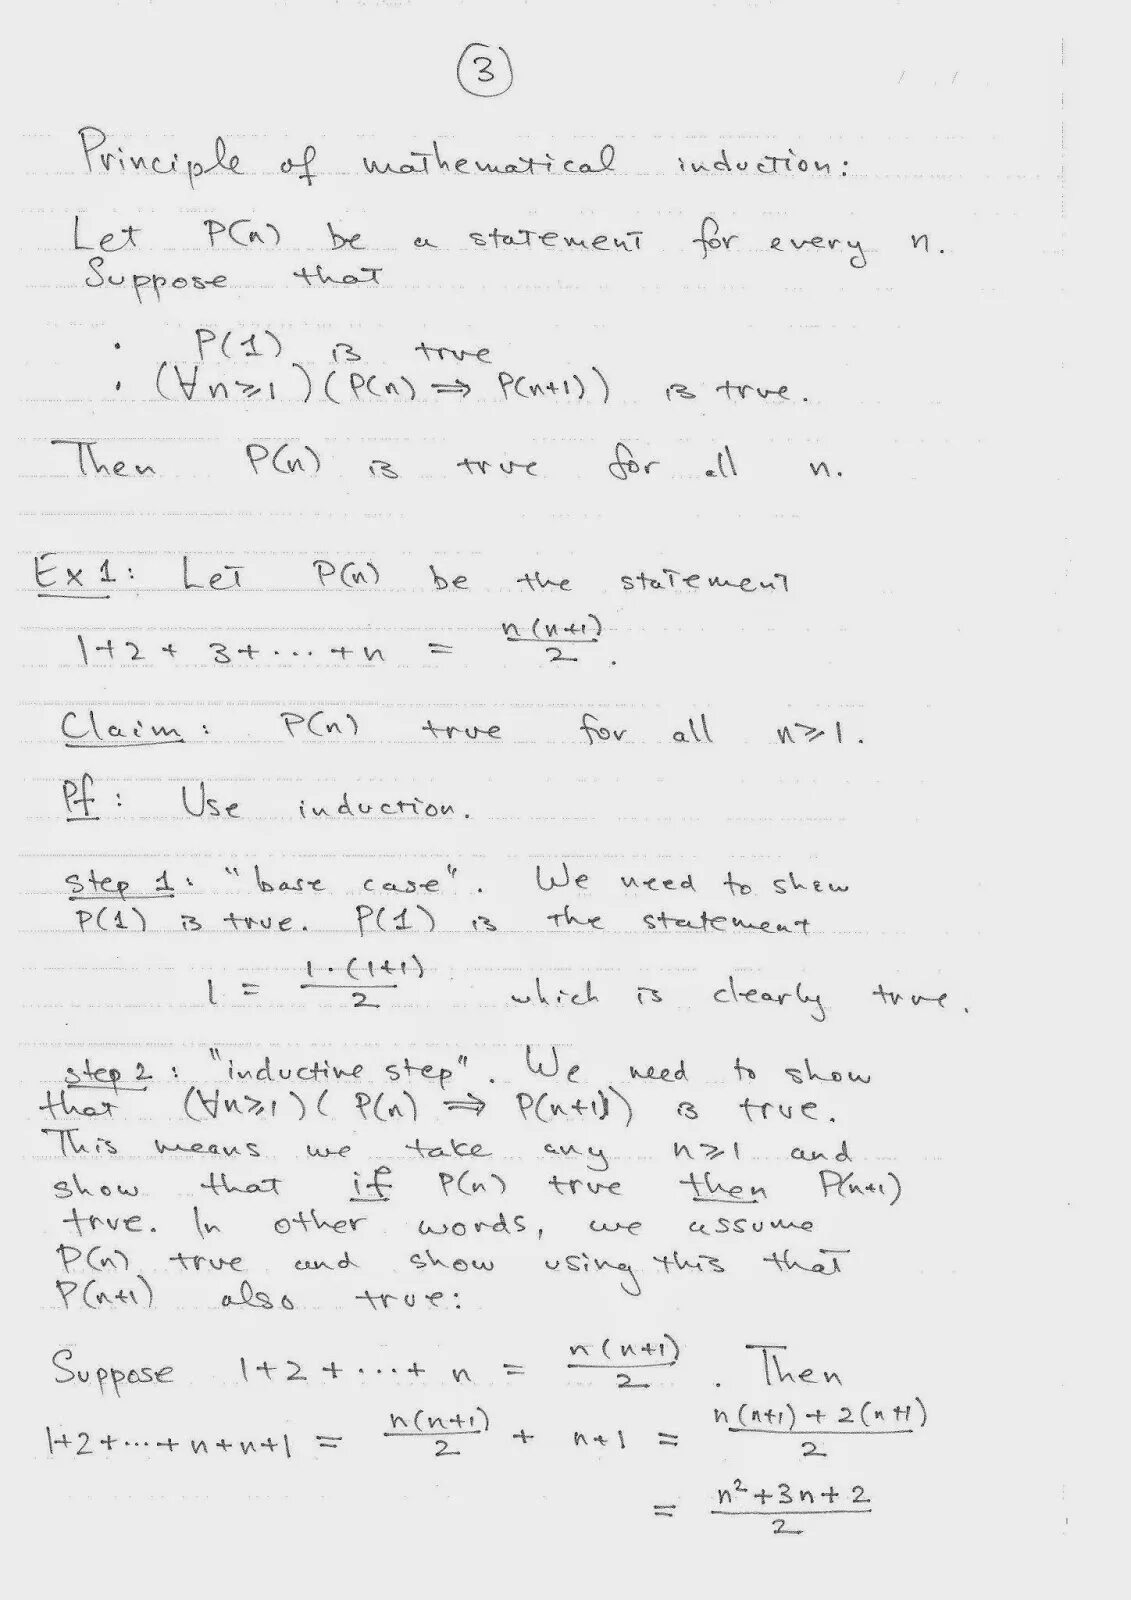 3
Principle of mathematical induction:
Let P(n) be a statement for every n.
Suppose that
· P(1) is true
· (∀n⩾1)(P(n) ⇒ P(n+1)) is true.
Then P(n) is true for all n.
Ex 1: Let P(n) be the statement
1+2+3+···+n = n(n+1)/2.
Claim: P(n) true for all n⩾1.
Pf: Use induction.
step 1: "base case". We need to show
P(1) is true. P(1) is the statement
1 = 1·(1+1)/2 which is clearly true.
step 2: "inductive step". We need to show
that (∀n⩾1)(P(n) ⇒ P(n+1)) is true.
This means we take any n⩾1 and
show that if P(n) true then P(n+1)
true. In other words, we assume
P(n) true and show using this that
P(n+1) also true:
Suppose 1+2+···+n = n(n+1)/2. Then
1+2+···+n+n+1 = n(n+1)/2 + n+1 = n(n+1)+2(n+1)/2
= n²+3n+2/2